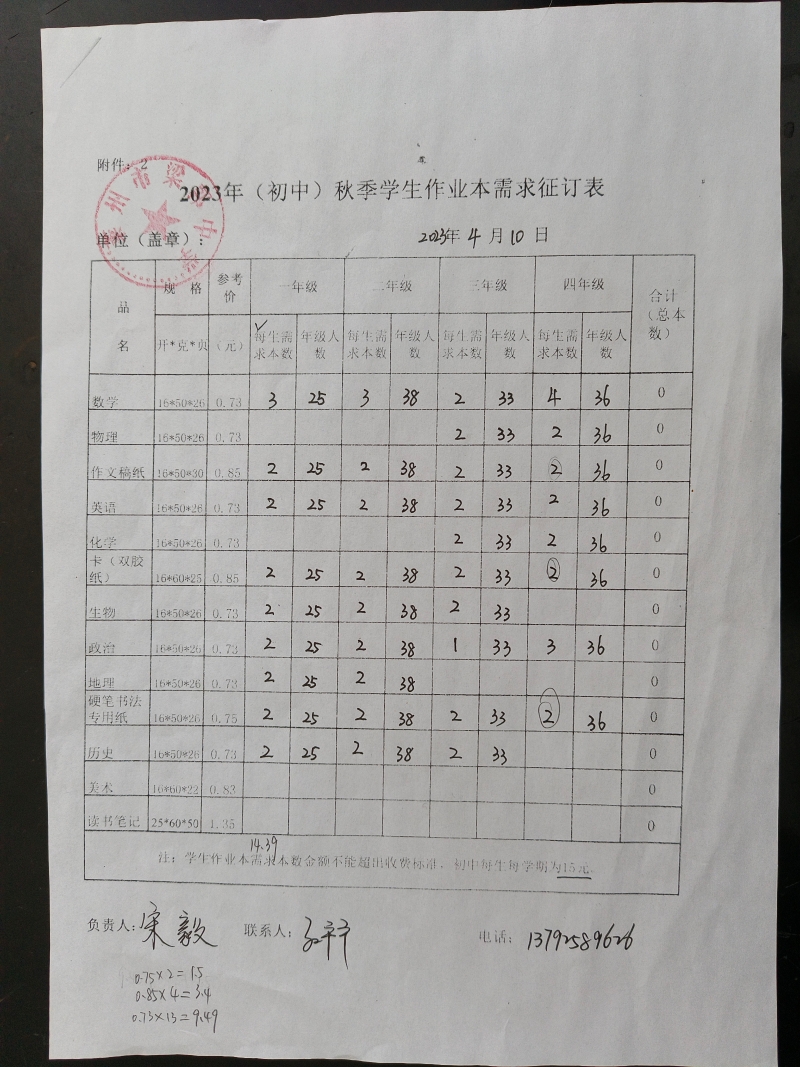 附件：2
2023年（初中）秋季学生作业本需求征订表
州市梁中
单位（盖章）：
2023年 4 月 10 日
品名 规 格 参考价 一年级 二年级 三年级 四年级 合计（总本数）
开*克*页 （元） 每生需求本数 年级人数 每生需求本数 年级人数 每生需求本数 年级人数 每生需求本数 年级人数
数学 16*50*26 0.73 3 25 3 38 2 33 4 36 0
物理 16*50*26 0.73 2 33 2 36 0
作文稿纸 16*50*30 0.85 2 25 2 38 2 33 2 36 0
英语 16*50*26 0.73 2 25 2 38 2 33 2 36 0
化学 16*50*26 0.73 2 33 2 36 0
卡（双胶纸） 16*60*25 0.85 2 25 2 38 2 33 2 36 0
生物 16*50*26 0.73 2 25 2 38 2 33 0
政治 16*50*26 0.73 2 25 2 38 1 33 3 36 0
地理 16*50*26 0.73 2 25 2 38 0
硬笔书法专用纸 16*50*26 0.75 2 25 2 38 2 33 2 36 0
历史 16*50*26 0.73 2 25 2 38 2 33 0
美术 16*60*22 0.83 0
读书笔记 25*60*50 1.35 0
14.39
注：学生作业本需求本数金额不能超出收费标准，初中每生每学期为15元。
负责人：宋毅 联系人： 电话：13792589626
0.75×2=1.5
0.85×4=3.4
0.73×13=9.49